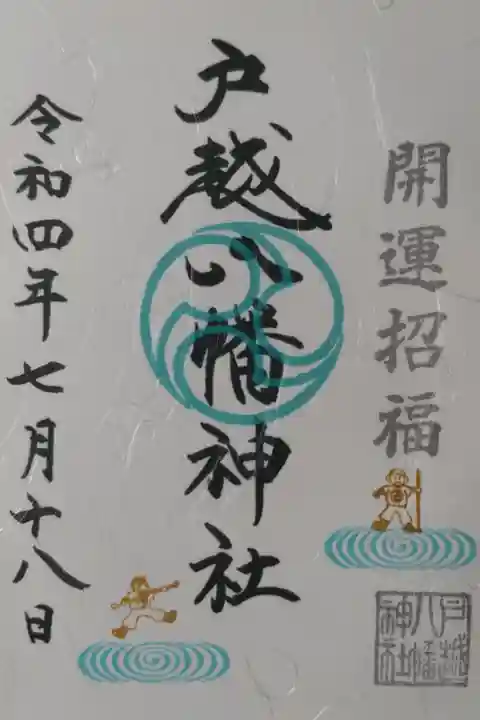 開運招福
戸越八幡神社
戸越
八幡
神社
令和四年七月十八日